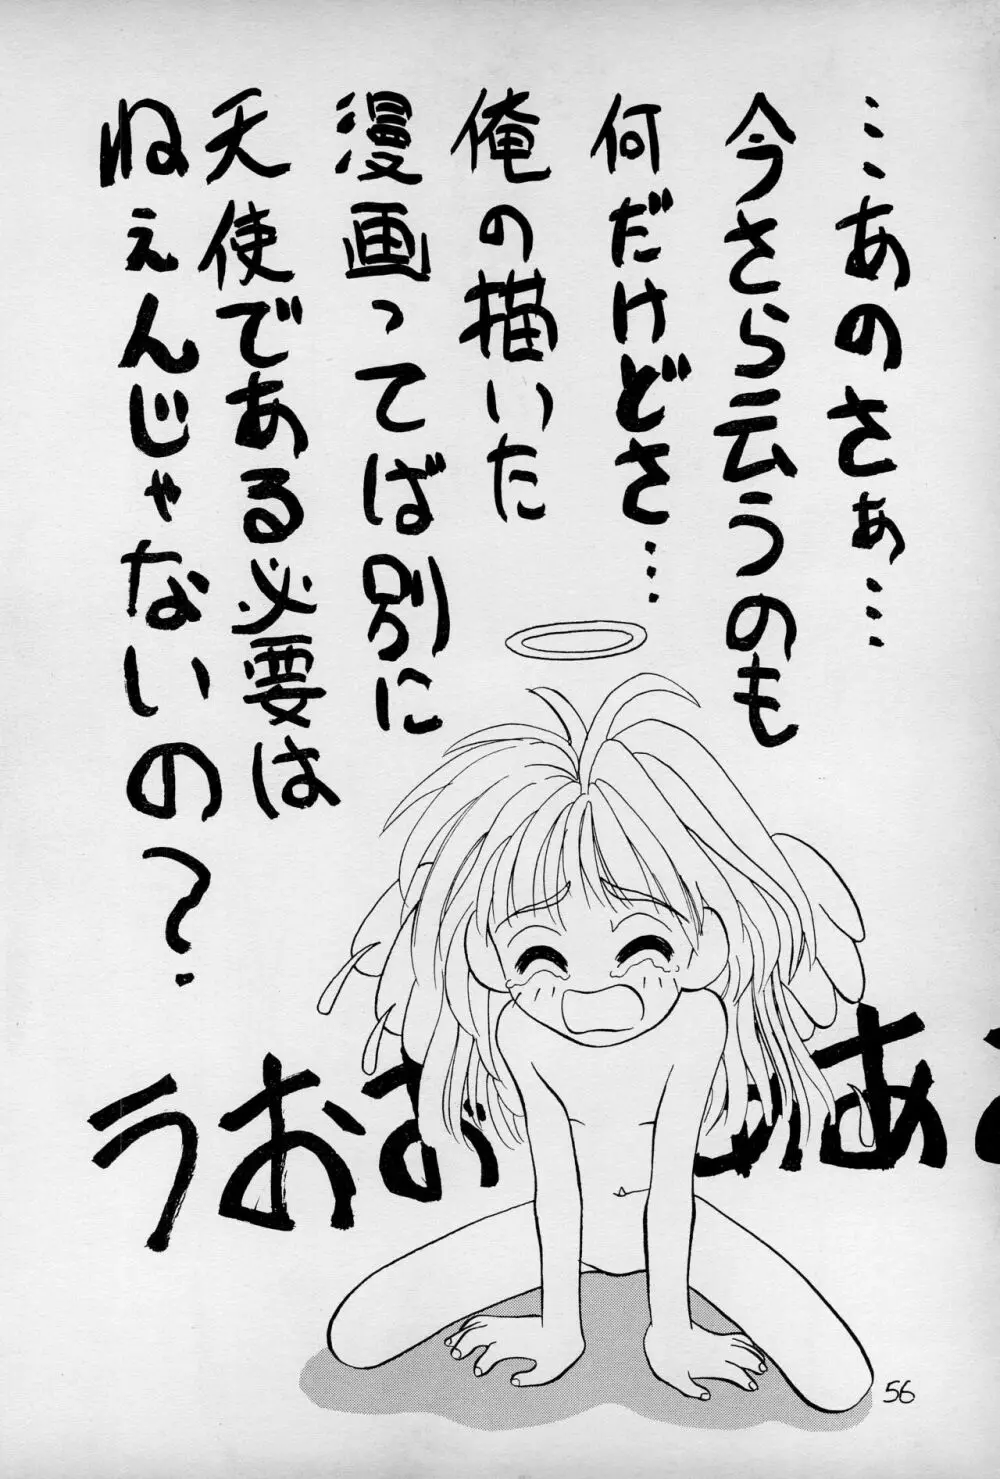 …あのさぁ……
今さら云うのも
何だけどさ…
俺の描いた
漫画ってば別に
天使である必要は
ねぇんじゃないの？
うおおぉ
ああ
56